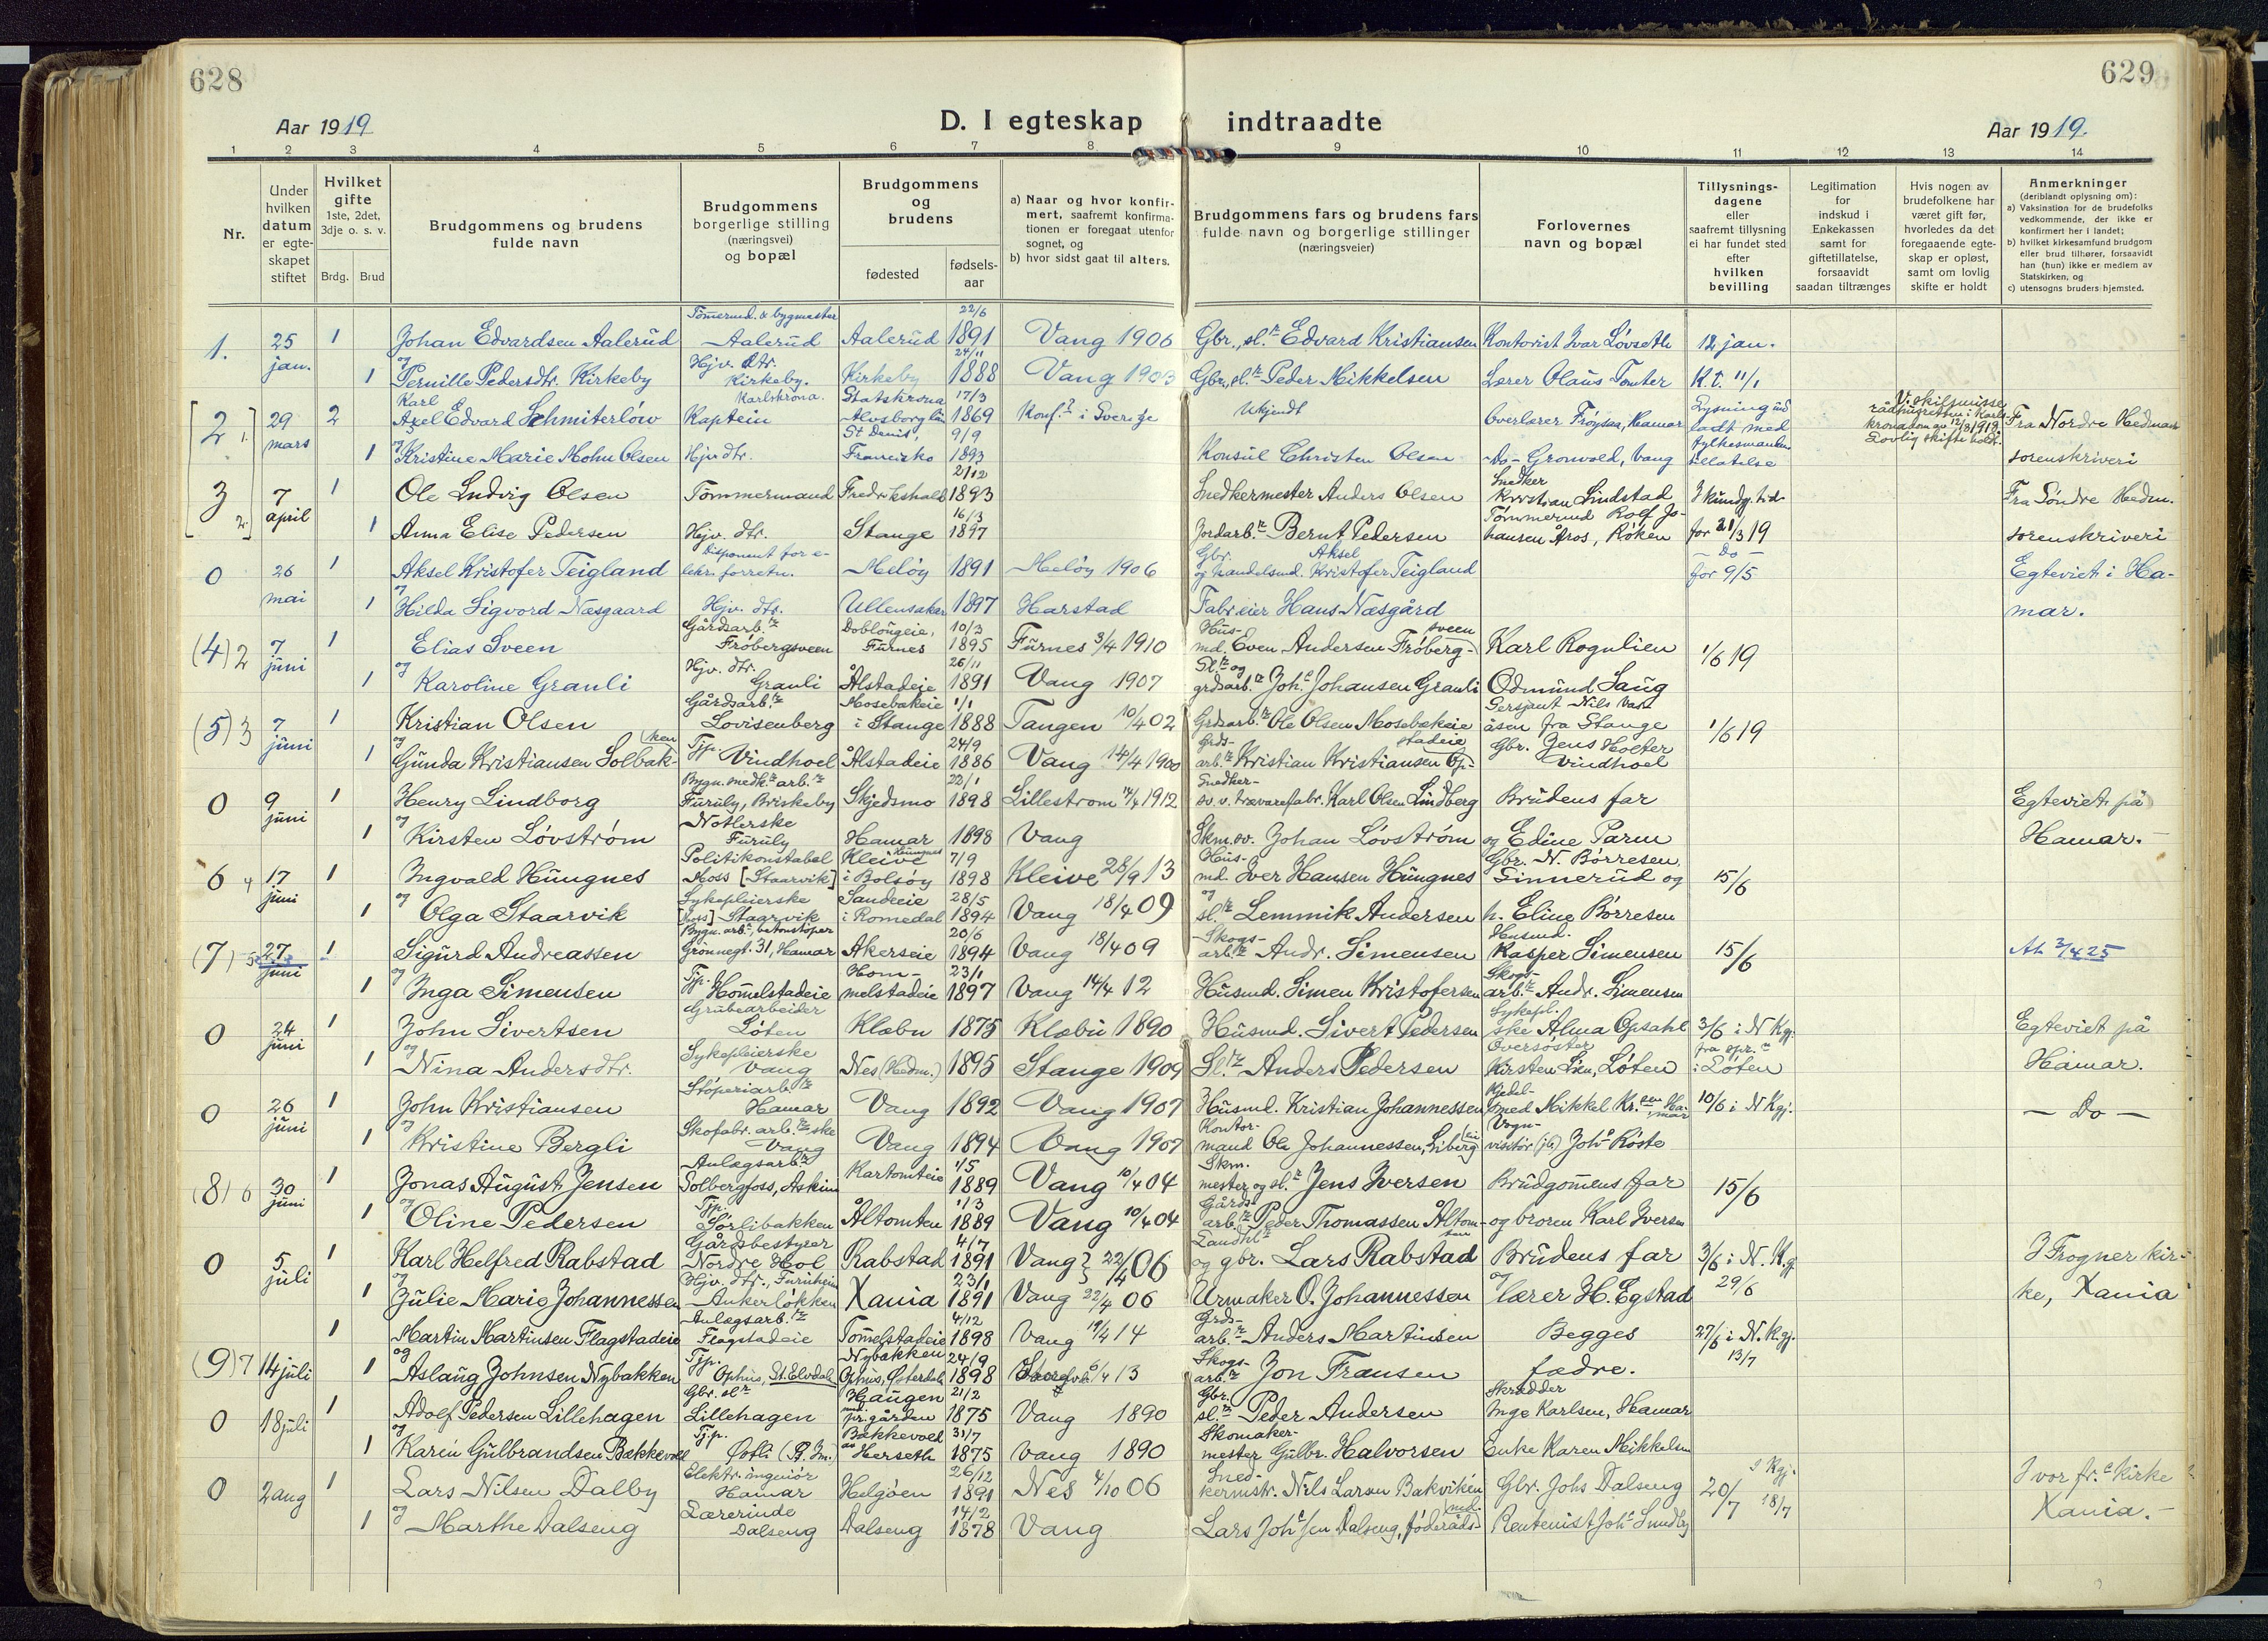 628
629
Aar 1919
D. I egteskap indtraadte
Aar 1919.
1 2 3 4 5 6 7 8 9 10 11 12 13 14
Nr.
Under hvilken datum er egteskapet stiftet
Hvilket gifte 1ste, 2det, 3dje o. s. v.
Brdg. Brud
Brudgommens og brudens fulde navn
Brudgommens borgerlige stilling (næringsvei) og bopæl
Brudgommens og brudens
fødested
fødselsaar
a) Naar og hvor konfirmert, saafremt konfirmationen er foregaat utenfor sognet, og
b) hvor sidst gaat til alters.
Brudgommens fars og brudens fars fulde navn og borgerlige stillinger (næringsveier)
Forlovernes navn og bopæl
Tillysningsdagene eller saafremt tillysning ei har fundet sted efter hvilken bevilling
Legitimation for indskud i Enkekassen samt for giftetillatelse, forsaavidt saadan tiltrænges
Hvis nogen av brudefolkene har været gift før, hvorledes da det foregaaende egteskap er opløst, samt om lovlig skifte er holdt
Anmerkninger
(deriblandt oplysning om):
a) Vaksination for de brudefolks vedkommende, der ikke er konfirmert her i landet;
b) hvilket kirkesamfund brudgom eller brud tilhører, forsaavidt han (hun) ikke er medlem av Statskirken, og
c) utensogns bruders hjemsted.
1. 25 jan. 1 Johan Edvardsen Aalerud Tømmermd. & bygmester Aalerud Aalerud 22/6 1891 Vang 1906 Gbr., sl.r Edvard Kristiansen Kontorist Ivar Løvseth 12 jan.
og 1 Pernille Pedersdtr. Kirkeby Hjv. dtr. Kirkeby. Kirkeby 24/11 1888 Vang 1903 Gbr., sl.r Peder Mikkelsen Lærer Olaus Tomter K.t. 11/1
[2] 1. 29 mars 2 Karl Axel Edvard Schmiterløw Kaptein Karlskrona. Statskrona Alvsborg län 17/3 1869 Konf.? i Sverige Ukjendt Overlærer Frøysaa, Hamar Lysning und ladt med fylkesmanden tillatelse V. skilsmisse rådhusretten i Karlskrona dom av 12/8 1919. Lovlig skifte holdt. Fra Nordre Hedmark sorenskriveri
og 1 Kristine Marie Mohn Olsen Hjv. dtr. St Denis, Francisko 9/9 1893 Konsul Christen Olsen -Do- Gronvold, Vang
[3] 2. 7 april 1 Ole Ludvig Olsen Tømmermand Fredrikshald 21/12 1893 Snedkermester Anders Olsen Snedker Kristian Lindstad 3 kundg. tid for 21/3 19 Fra Søndre Hedm. sorenskriveri
1 Anna Elise Pedersen Hjv. dtr. Stange 16/3 1897 Jordarb.r Bernt Pedersen Tømmermd Rolf Johansen Åros, Røken
0 26 mai 1 Aksel Kristofer Teigland Disponent for elektr. forretn. Meløy 1891 Meløy 1906 Gbr. og handelsmd. Aksel Kristofer Teigland - Do - for 9/5 Egteviet i Hamar.
og 1 Hilda Sigvord Næsgaard Hjv. dtr. Ullensaker 1897 Harstad Fabr.eier Hans Næsgård
(4) 2 7 juni 1 Elias Sveen Gårdsarb.r Frøbergsveen Doblougeie, Furnes 10/3 1895 Furnes 3/4 1910 Husmd. Even Andersen Frøbergsveen Karl Rognlien 1/6 19
og 1 Karoline Granli Hjv. dtr. Granli Ålstadeie 26/11 1891 Vang 1907 Sl.r og grdsarb.r Joh.s Johansen Granli Odmund Saug
(5) 3 7 juni 1 Kristian Olsen Gårdsarb.r Lovisenberg Mosebækeie i Stange 1/1 1888 Tangen 10/4 02 Grdsarb.r Ole Olsen Mosebækeie Sersjant Nils Vasaasen fra Stange 1/6 19
og 1 Gunda Kristiansen Solbakken Tjp. Vindhoel Ålstadeie 24/9 1886 Vang 14/4 1900 Grdsarb.r Kristian Kristiansen Opstadeie Gbr. Jens Holter Vindhoel
0 9 juni 1 Henry Lindborg Bygn. snedk. arb.r Furuly, Briskeby Skjedsmo 22/1 1898 Lillestrøm 14/4 1912 Snedkersv. v. trævarefabr. Karl Olsen Lindberg Brudens far Egteviet på Hamar.
og 1 Kirsten Løvstrøm Notlerske Furuly Hamar 1898 Vang Skm.sv. Johan Løvstrøm og Edine Parm
6 4 17 juni 1 Ingvald Hungnes Politikonstabel Moss [Staarvik] Hungnes Kleive i Bolsøy 7/9 1898 Kleive 28/9 13 Husmd. Iver Hansen Hungnes Gbr. N. Børresen Sinnerud og 15/6
og 1 Olga Staarvik Sykepleierske [Moss] Staarvik Sandeeie i Romedal 28/5 1894 Vang 18/4 09 og sl.r Lemmik Andersen h. Eline Børresen
(7) 5 27 juni 1 Sigurd Andreassen Bygn. arb.r, betonstøper Grønnegt. 31, Hamar Akerseie 20/6 1894 Vang 18/4 09 Skogsarb.r Andr. Simensen Husmd. Kasper Simensen 15/6 At. 3/4 25
og 1 Inga Simensen Tjp. Hommelstadeie Hommelstadeie 23/1 1897 Vang 14/4 12 Husmd. Simen Kristofersen Skogsarb.r Andr. Simensen
0 24 juni 1 John Sivertsen Grubearbeider Løten Klæbu 1875 Klæbu 1890 Husmd. Sivert Pedersen Sykepl.ske Alma Opsahl 3/6 i N Kgj. Egteviet på Hamar.
og 1 Nina Andersdtr. Sykepleierske Vang Nes (Hedm.) 1895 Stange 1909 Sl.r Anders Pedersen Oversøster Kirsten Lien, Løten fra spr. i Løten
0 26 juni 1 John Kristiansen Støperiarb.r Hamar Vang 1892 Vang 1907 Husmd. Kristian Johannessen Kjedelsmed Mikkel Kr.sen Hamar 10/6 i N Kgj. - Do -
og 1 Kristine Bergli Skofabr. arb.rske Vang Vang 1894 Vang 1907 Kontormand Ole Johannessen, Liberg Vognvisitør Joh.s Røste
(8) 6 30 juni 1 Jonas August Jensen Anlægsarb.r Solbergfoss, Askim Kartomteie 1/5 1889 Vang 10/4 04 Skm.mester og sl.r Jens Iversen Brudgommens far 15/6
og 1 Oline Pedersen Tjp. Sørlibakken Åltomten 1/3 1889 Vang 10/4 04 Gårdsarb.r Peder Thomassen Åltomten og broren Karl Iversen
0 5 juli 1 Karl Helfred Rabstad Gårdsbestyrer Nordre Hol Rabstad 4/7 1891 Vang 22/4 06 Landhl. og gbr. Lars Rabstad Brudens far 3/6 i N. Kg. I Frogner kirke, Xania
og 1 Julie Marie Johannessen Hjv. dtr., Furuheim Ankerløkken Xania 23/1 1891 Vang 22/4 06 Urmaker O. Johannessen og lærer H. Egstad 29/6
1 Martin Martinsen Flagstadeie Anlægsarb.r Flagstadeie Tommelstadeie 4/12 1898 Vang 19/4 14 Grdsarb.r Anders Martinsen Begges 27/6 i N. Kgj. 13/7
(9) 7 14 juli og 1 Aslaug Johnsen Nybakken Tjp. Ophus, St. Elvdal Nybakken Ophus, Østerdalen 24/9 1898 6/4 13 Skogsarb.r Jon Fransen fædre.
0 18 juli 1 Adolf Pedersen Lillehagen Gbr. sl.r Lillehagen Haugen pr.gården 21/2 1875 Vang 1890 Gbr. sl.r Peder Andersen Skrædder Inge Karlsen, Hamar
og 1 Karen Gulbrandsen Bakkevold Tjp. Østli Bakkevold Herseth 31/7 1875 Vang 1890 Skomakermester Gulbr. Halvorsen Enke Karen Mikkelsen
0 2 aug 1 Lars Nilsen Dalby Elektr. ingeniør Hamar Helgøen 26/12 1891 Nes 4/10 06 Snedkermstr. Nils Larsen Bakviken Gbr. Johs Dalseng 20/7 I Kgj. 18/7 I vor fr.e kirke Xania. -
og 1 Marthe Dalseng Lærerinde Dalseng Dalseng 14/2 1878 Vang Lars Joh.sen Dalseng, føderådsmd. Rentenist Joh.s Smedby